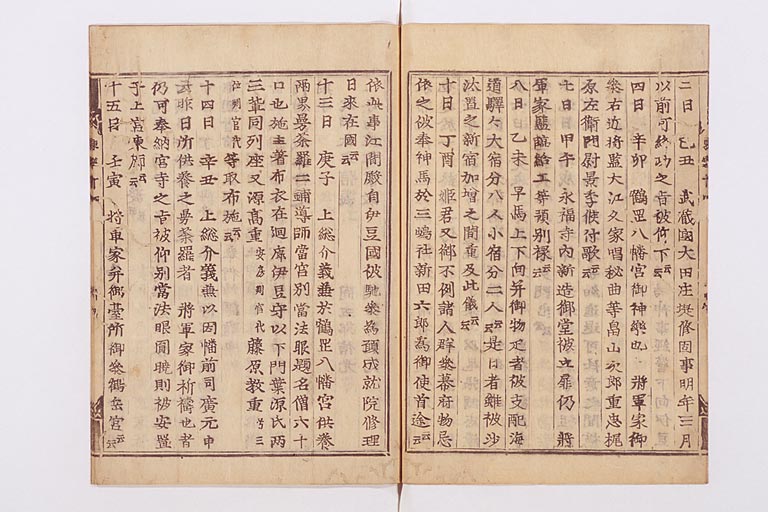 二日 己丑 武蔵國大田庄堤修固事明年三月
以前可終功之旨被仰下云云
四日 辛卯 鶴岡八幡宮御神樂也 將軍家御
參右近將監大江久家唱秘曲等畠山次郎重忠梶
原左衛門尉景季候付歌云云
七日 甲午 永福寺内新造御堂被立扉仍將
軍家監臨給工等預別禄云云
八日 乙未 早馬上下向并御物疋者被支配海
道驛々大宿分八人小宿分二人云云是日者雖被沙
汰置之新宿加增之間重及此儀云云
十日 丁酉 姫君又御不例諸人群參幕府物忌
依之被奉神馬於三嶋社新田六郎為御使首途云云
依此事江間殿自伊豆國被馳參為願成就院修理
日來在國云云
十三日 庚子 上総介義兼於鶴岡八幡宮供養
兩界曼荼羅二鋪導師當宮別當法眼題名僧六十
口也施主著布衣在廻廊伊豆守以下門葉源氏兩
三輩同列座又源高重 藤原教重
等取布施云云
十四日 辛丑 上総介義兼以因幡前司廣元申
云昨日所供養之曼荼羅者 將軍家御祈禱也者
仍可奉納宮寺之旨被仰別當法眼圓曉則被安置
于上宮東廊云云
十五日 壬寅 將軍家并御臺所御參鶴岳宮云云